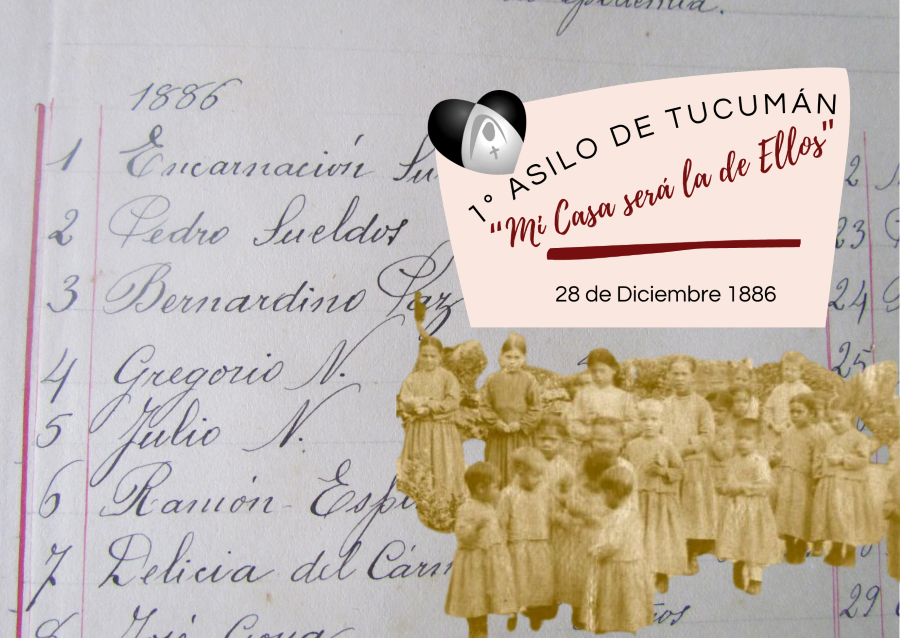 epidemia.
1886
1º ASILO DE TUCUMÁN
"Mi Casa será la de Ellos"
28 de Diciembre 1886
1 Encarnación Su
2 Pedro Sueldos
3 Bernardino Paz
4 Gregorio N.
5 Julio N.
6 Ramón Espi
7 Delicia del Cárm
8 José
2
23
24
25
29